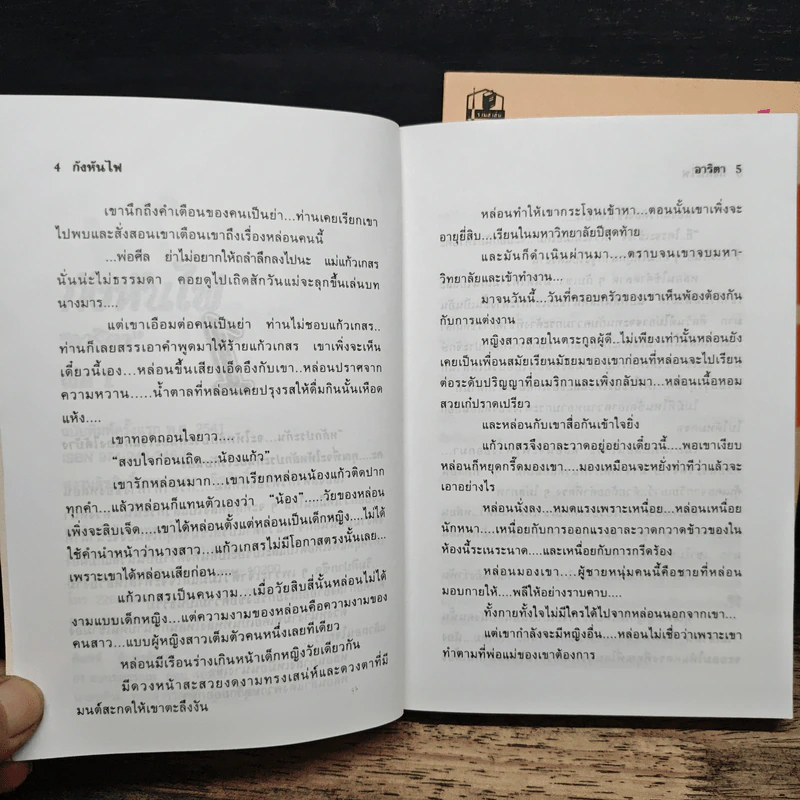 4 กังหันไฟ
เขานึกถึงคำเตือนของคนเป็นย่า...ท่านเคยเรียกเขา
ไปพบและสั่งสอนเขาเตือนเขาถึงเรื่องหล่อนคนนี้
...พ่อศีล ย่าไม่อยากให้ถลำลึกลงไปนะ แม่แก้วเกสร
นั่นน่ะไม่ธรรมดา คอยดูไปเถิดสักวันแม่จะลุกขึ้นเล่นบท
นางมาร....
แต่เขาเอือมต่อคนเป็นย่า ท่านไม่ชอบแก้วเกสร..
ท่านก็เลยสรรเอาคำพูดมาให้ร้ายแก้วเกสร เขาเพิ่งจะเห็น
เดี๋ยวนี้เอง...หล่อนขึ้นเสียงเอ็ดอึงกับเขา..หล่อนปราศจาก
ความหวาน.....น้ำตาลที่หล่อนเคยปรุงรสให้ดื่มกินนั้นเหือด
แห้ง....
เขาทอดถอนใจยาว....
"สงบใจก่อนเถิด....น้องแก้ว"
เขารักหล่อนมาก...เขาเรียกหล่อนน้องแก้วติดปาก
ทุกคำ...แล้วหล่อนก็แทนตัวเองว่า "น้อง".....วัยของหล่อน
เพิ่งจะสิบเจ็ด....เขาได้หล่อนตั้งแต่หล่อนเป็นเด็กหญิง....ไม่ได้
ใช้คำนำหน้าว่านางสาว...แก้วเกสรไม่มีโอกาสตรงนั้นเลย...
เพราะเขาได้หล่อนเสียก่อน....
แก้วเกสรเป็นคนงาม...เมื่อวัยสิบสี่นั้นหล่อนไม่ได้
งามแบบเด็กหญิง...แต่ความงามของหล่อนคือความงามของ
คนสาว...แบบผู้หญิงสาวเต็มตัวคนหนึ่งเลยทีเดียว
หล่อนมีเรือนร่างเกินหน้าเด็กหญิงวัยเดียวกัน
มีดวงหน้าสะสวยงดงามทรงเสน่ห์และดวงตาที่มี
มนต์สะกดให้เขาตะลึงงัน
อาริตา 5
หล่อนทำให้เขากระโจนเข้าหา...ตอนนั้นเขาเพิ่งจะ
อายุยี่สิบ...เรียนในมหาวิทยาลัยปีสุดท้าย
และมันก็ดำเนินผ่านมา....ตราบจนเขาจบมหา-
วิทยาลัยและเข้าทำงาน...
มาจนวันนี้...วันที่ครอบครัวของเขาเห็นพ้องต้องกัน
กับการแต่งงาน
หญิงสาวสวยในตระกูลผู้ดี..ไม่เพียงเท่านั้นหล่อนยัง
เคยเป็นเพื่อนสมัยเรียนมัธยมของเขาก่อนที่หล่อนจะไปเรียน
ต่อระดับปริญญาที่อเมริกาและเพิ่งกลับมา...หล่อนเนื้อหอม
สวยเก๋ปราดเปรียว
และหล่อนกับเขาสื่อกันเข้าใจยิ่ง
แก้วเกสรจึงอาละวาดอยู่อย่างเดี๋ยวนี้....พอเขาเงียบ
หล่อนก็หยุดกรี๊ดมองเขา....มองเหมือนจะหยั่งท่าทีว่าแล้วจะ
เอาอย่างไร
หล่อนนั่งลง...หมดแรงเพราะเหนื่อย...หล่อนเหนื่อย
นักหนา....เหนื่อยกับการออกแรงอาละวาดกวาดข้าวของใน
ห้องนี้ระเนระนาด....และเหนื่อยกับการกรีดร้อง
หล่อนมองเขา....ผู้ชายหนุ่มคนนี้คือชายที่หล่อน
มอบกายให้....พลีให้อย่างราบคาบ....
ทั้งกายทั้งใจไม่มีใครได้ไปจากหล่อนนอกจากเขา...
แต่เขากำลังจะมีหญิงอื่น....หล่อนไม่เชื่อว่าเพราะเขา
ทำตามที่พ่อแม่ของเขาต้องการ